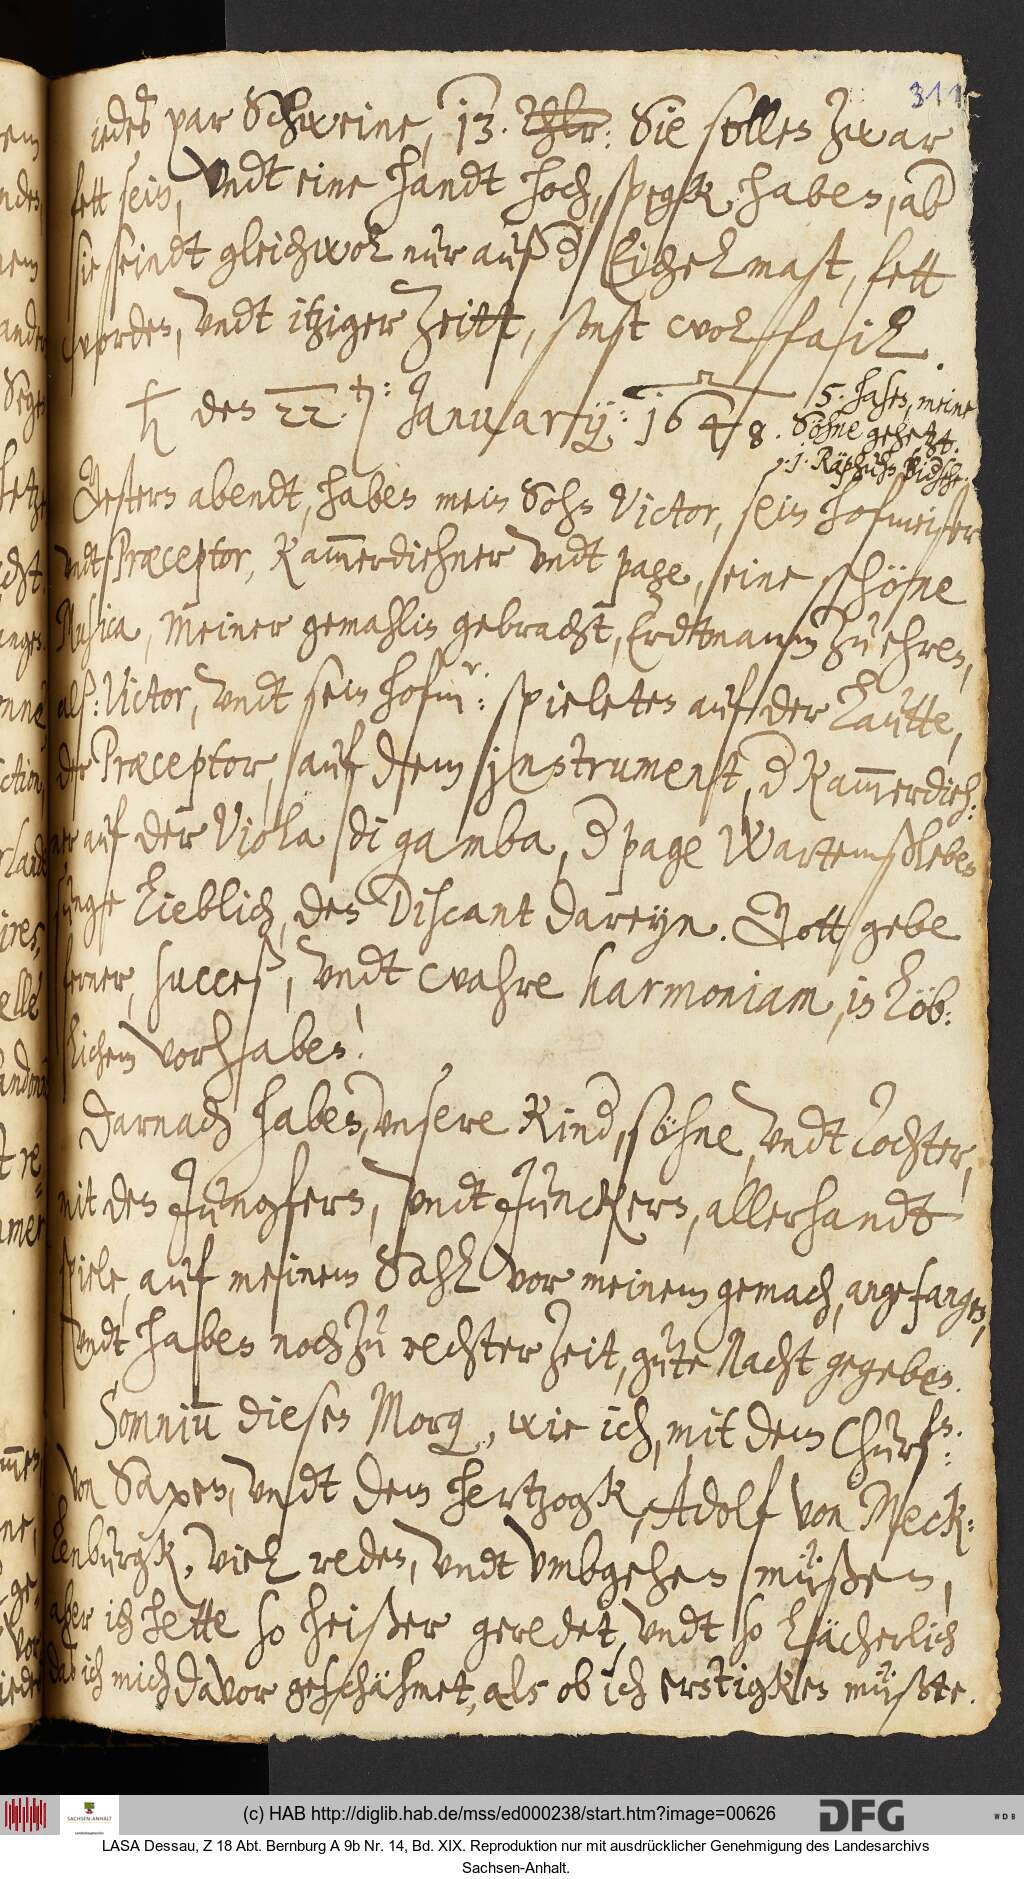 311
iedes par Schweine, 13. Thlr: Sie sollen zwar
fett sein, vndt eine handt hoch, spegk haben, ab
sie seindt gleichwol nur auß d Eichelmast, fett
worden, vndt itziger Zeitt, sonst wolfail.
♄ den 22. Januarij: 1648.
5. hasen, meine
Söhne gehetzt.
Gestern abendt, haben mein Sohn Victor, sein hofmeister
vndt Præceptor, Kammerdiehner vndt page, eine schöne
Musica, Meiner gemahlin gebracht, Erdtmann zu ehren,
alß: Victor, vndt sein hofmr: spieleten auf der Lautte,
der Præceptor, auf dem jnstrument, d Kammerdieh:
ner auf der Viola di gamba, d page Wartemßleben
sunge lieblich, den Discant dareyn. Gott gebe
ferner, succeß, vndt wahre harmoniam, in löb:
lichem vorhaben!
Darnach haben, vnsere Kind, söhne, vndt Tochter,
mit den Jungfern, vndt Junckern, allerhandt
spiele, auf meinem Sahl vor meinem gemach, angefangen,
vndt haben noch zu rechter Zeit, gute Nacht gegeben.
Somnium dieses Morg, wie ich, mit dem Churf:
von Saxen, vndt dem Hertzogk, Adolf von Meck:
lenburgk, viel reden, vndt vmbgehen müßen,
aber ich hette so heißer geredet, vndt so lächerlich
daß ich mich davor geschähmet, als ob ich erstigken müßte.
SACHSEN-ANHALT
(c) HAB http://diglib.hab.de/mss/ed000238/start.htm?image=00626
DFG
W D B
LASA Dessau, Z 18 Abt. Bernburg A 9b Nr. 14, Bd. XIX. Reproduktion nur mit ausdrücklicher Genehmigung des Landesarchivs
Sachsen-Anhalt.